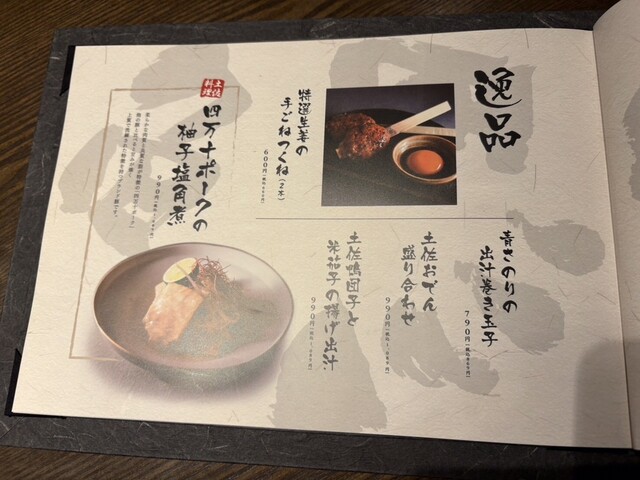 逸品
特選生姜の
手ごねつくね(2本)
600円
青さのりの
出汁巻き玉子
790円
土佐おでん
盛り合わせ
990円
土佐鴨団子と
米茄子の揚げ出汁
990円
土佐
料理
四万十ポークの
柚子塩角煮
990円